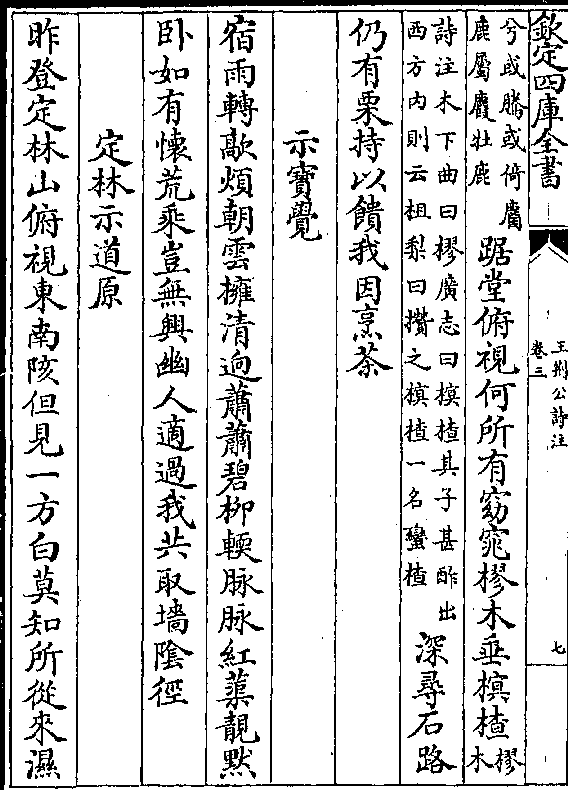 欽定四庫全書
王荆公詩注
卷三
七
兮或騰或倚麕
鹿屬麚牡鹿
踞堂俯視何所有窈窕樛木垂榠樝
樛木
詩注木下曲曰樛廣志曰榠楂其子甚酢出
西方内則云柤梨曰攢之榠楂一名蠻楂
深尋石路
仍有栗持以饋我因烹茶
示寶覺
宿雨轉歊煩朝雲擁清逈蕭蕭碧柳輭脉脉紅蕖靚黙
卧如有懷荒乘豈無興幽人適過我共取墻陰徑
定林示道原
昨登定林山俯視東南陔但見一方白莫知所從來濕